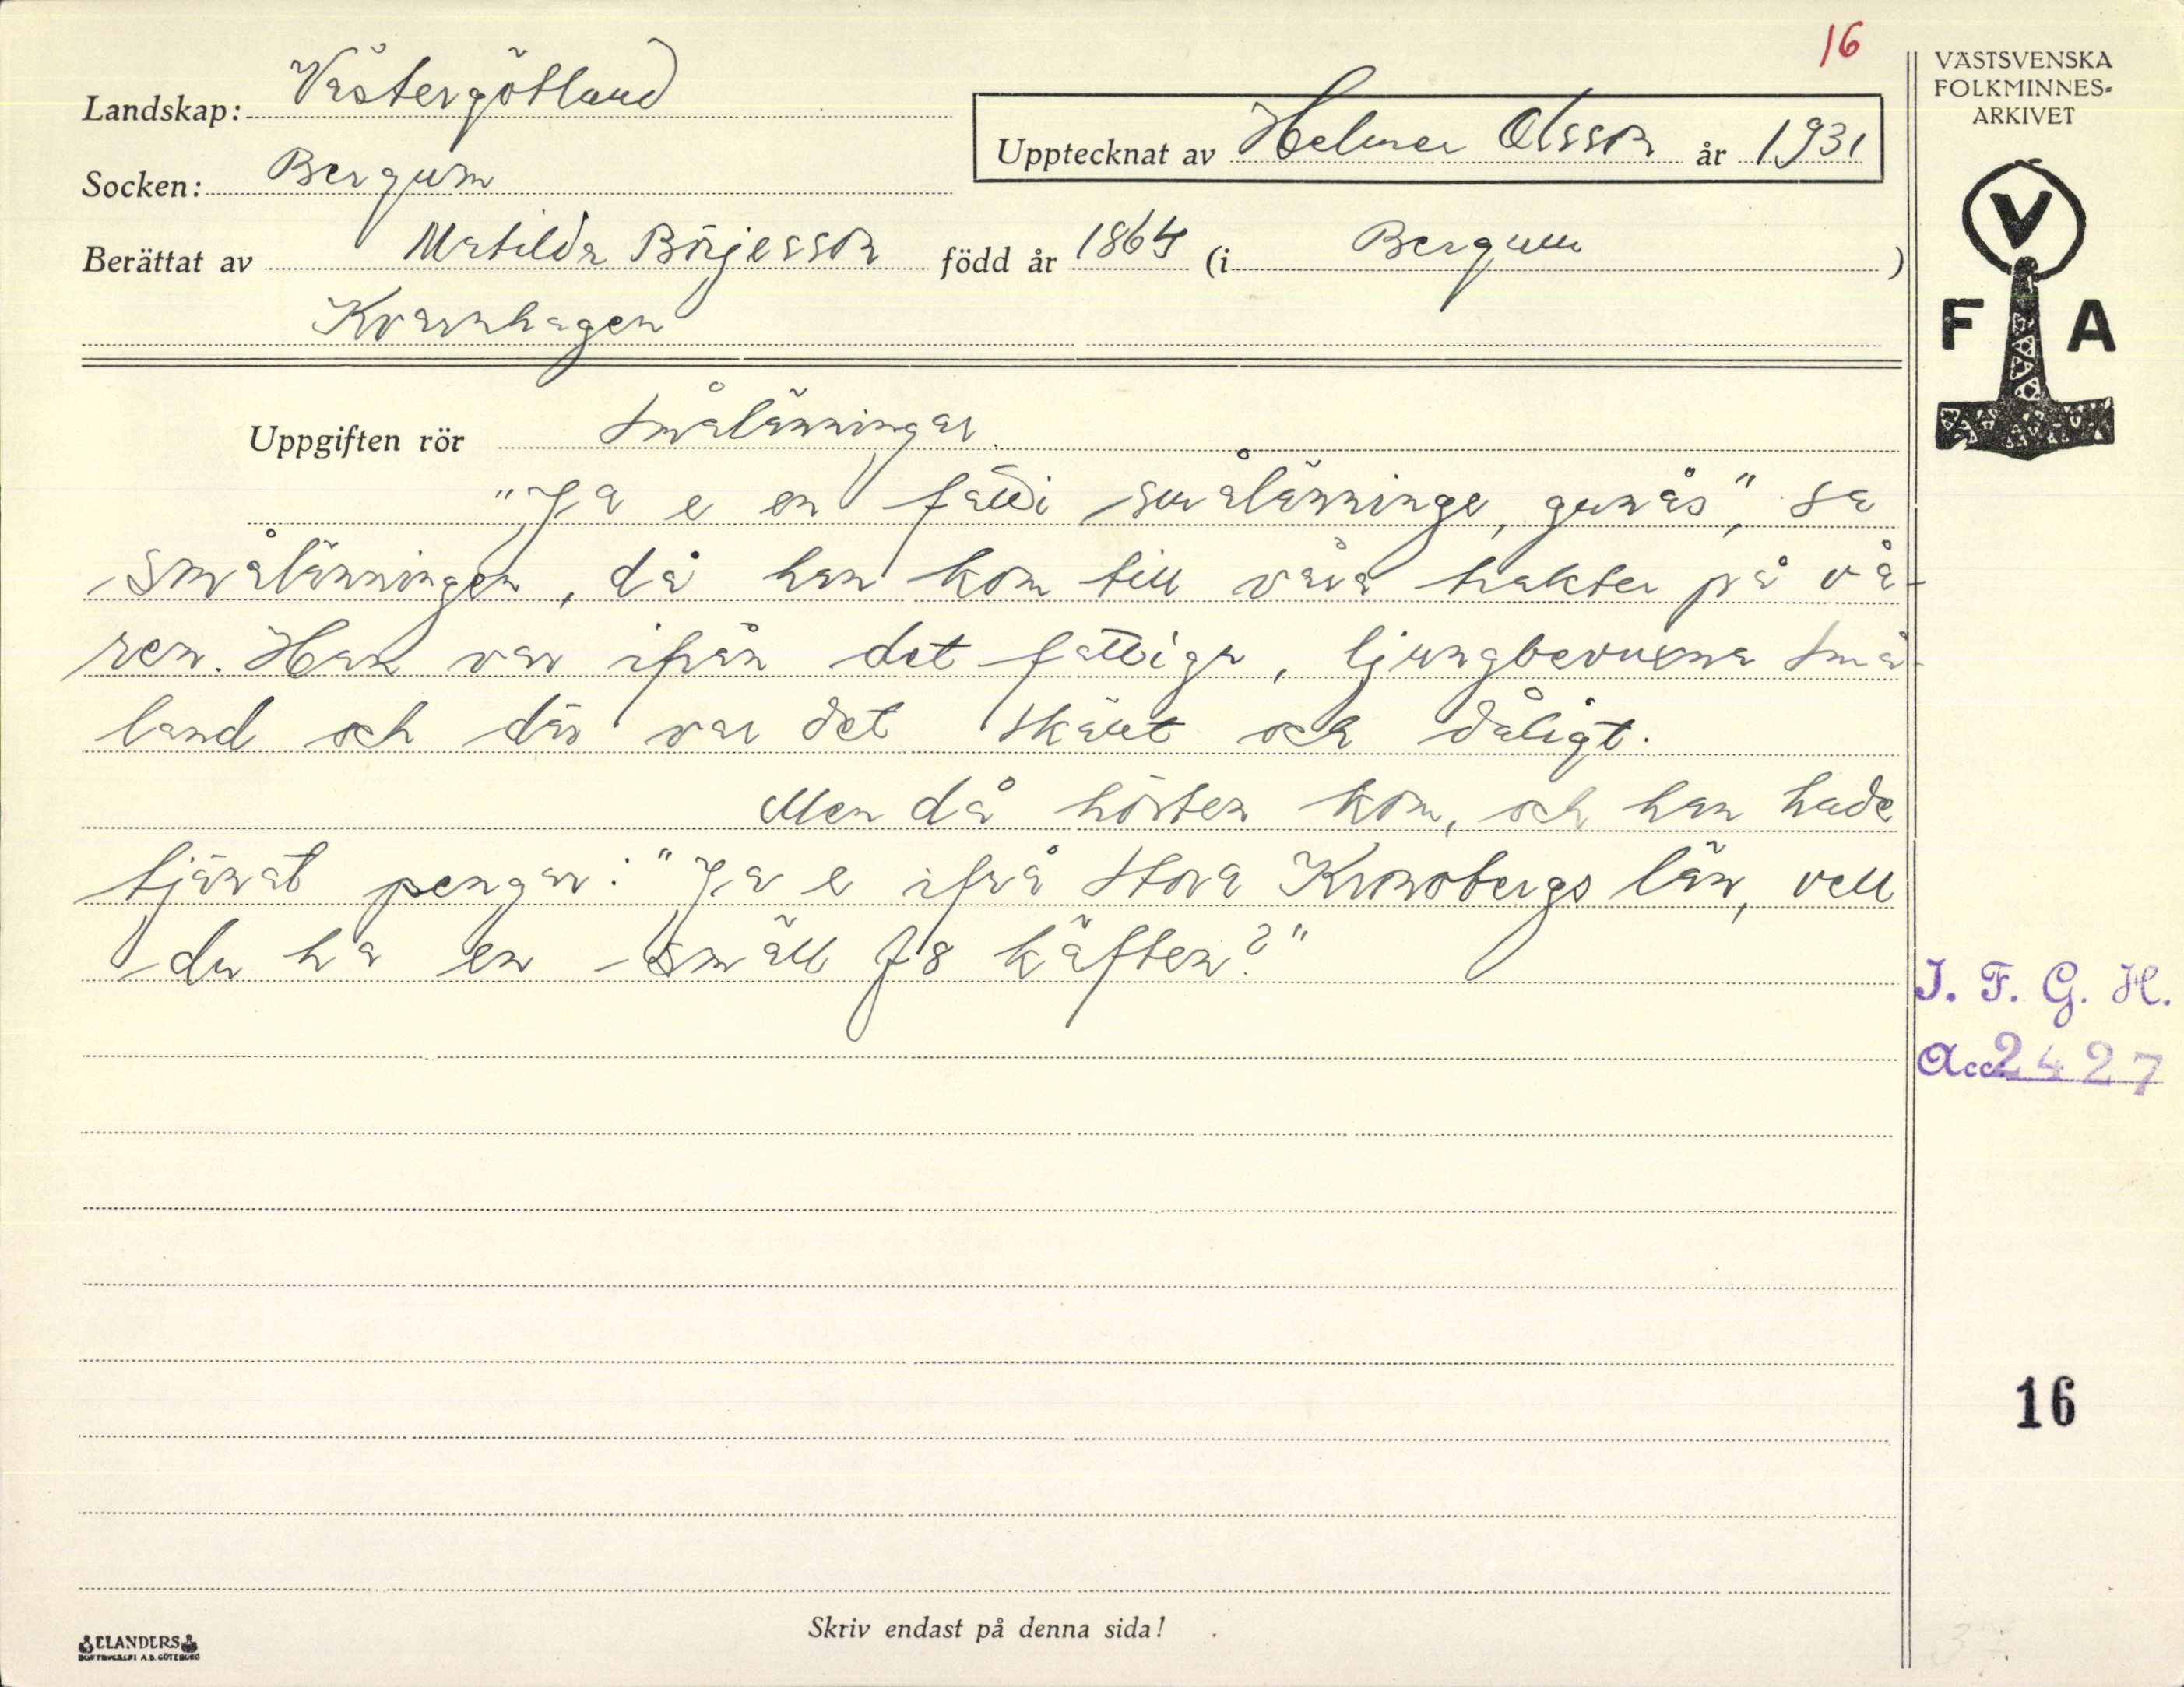 16
Landskap: Västergötland
Upptecknat av Helmer Olsson år 1931
Socken: Bergum
Berättat av Matilda Börjesson född år 1864 (i Bergum)
Kvarnhagen
Uppgiften rör Smålänningar.
"Ja e en fatti smålänninge, gunås", sa
smålänningen, då han kom till våra trakter på vå-
ren. Han var ifrån det fattiga, ljungbevuxna Små-
land och där var det skralt och dåligt.
Men då hösten kom, och han hade
tjänat pengar: "Ja e ifrå Stora Kronobergs län, vell
du ha en smäll på käften?"
VÄSTSVENSKA
FOLKMINNES-
ARKIVET
V
F A
I. F. G. H.
Acc 2427
16
Skriv endast på denna sida!
ELANDERS
BOKTRYCKERI A.B. GÖTEBORG